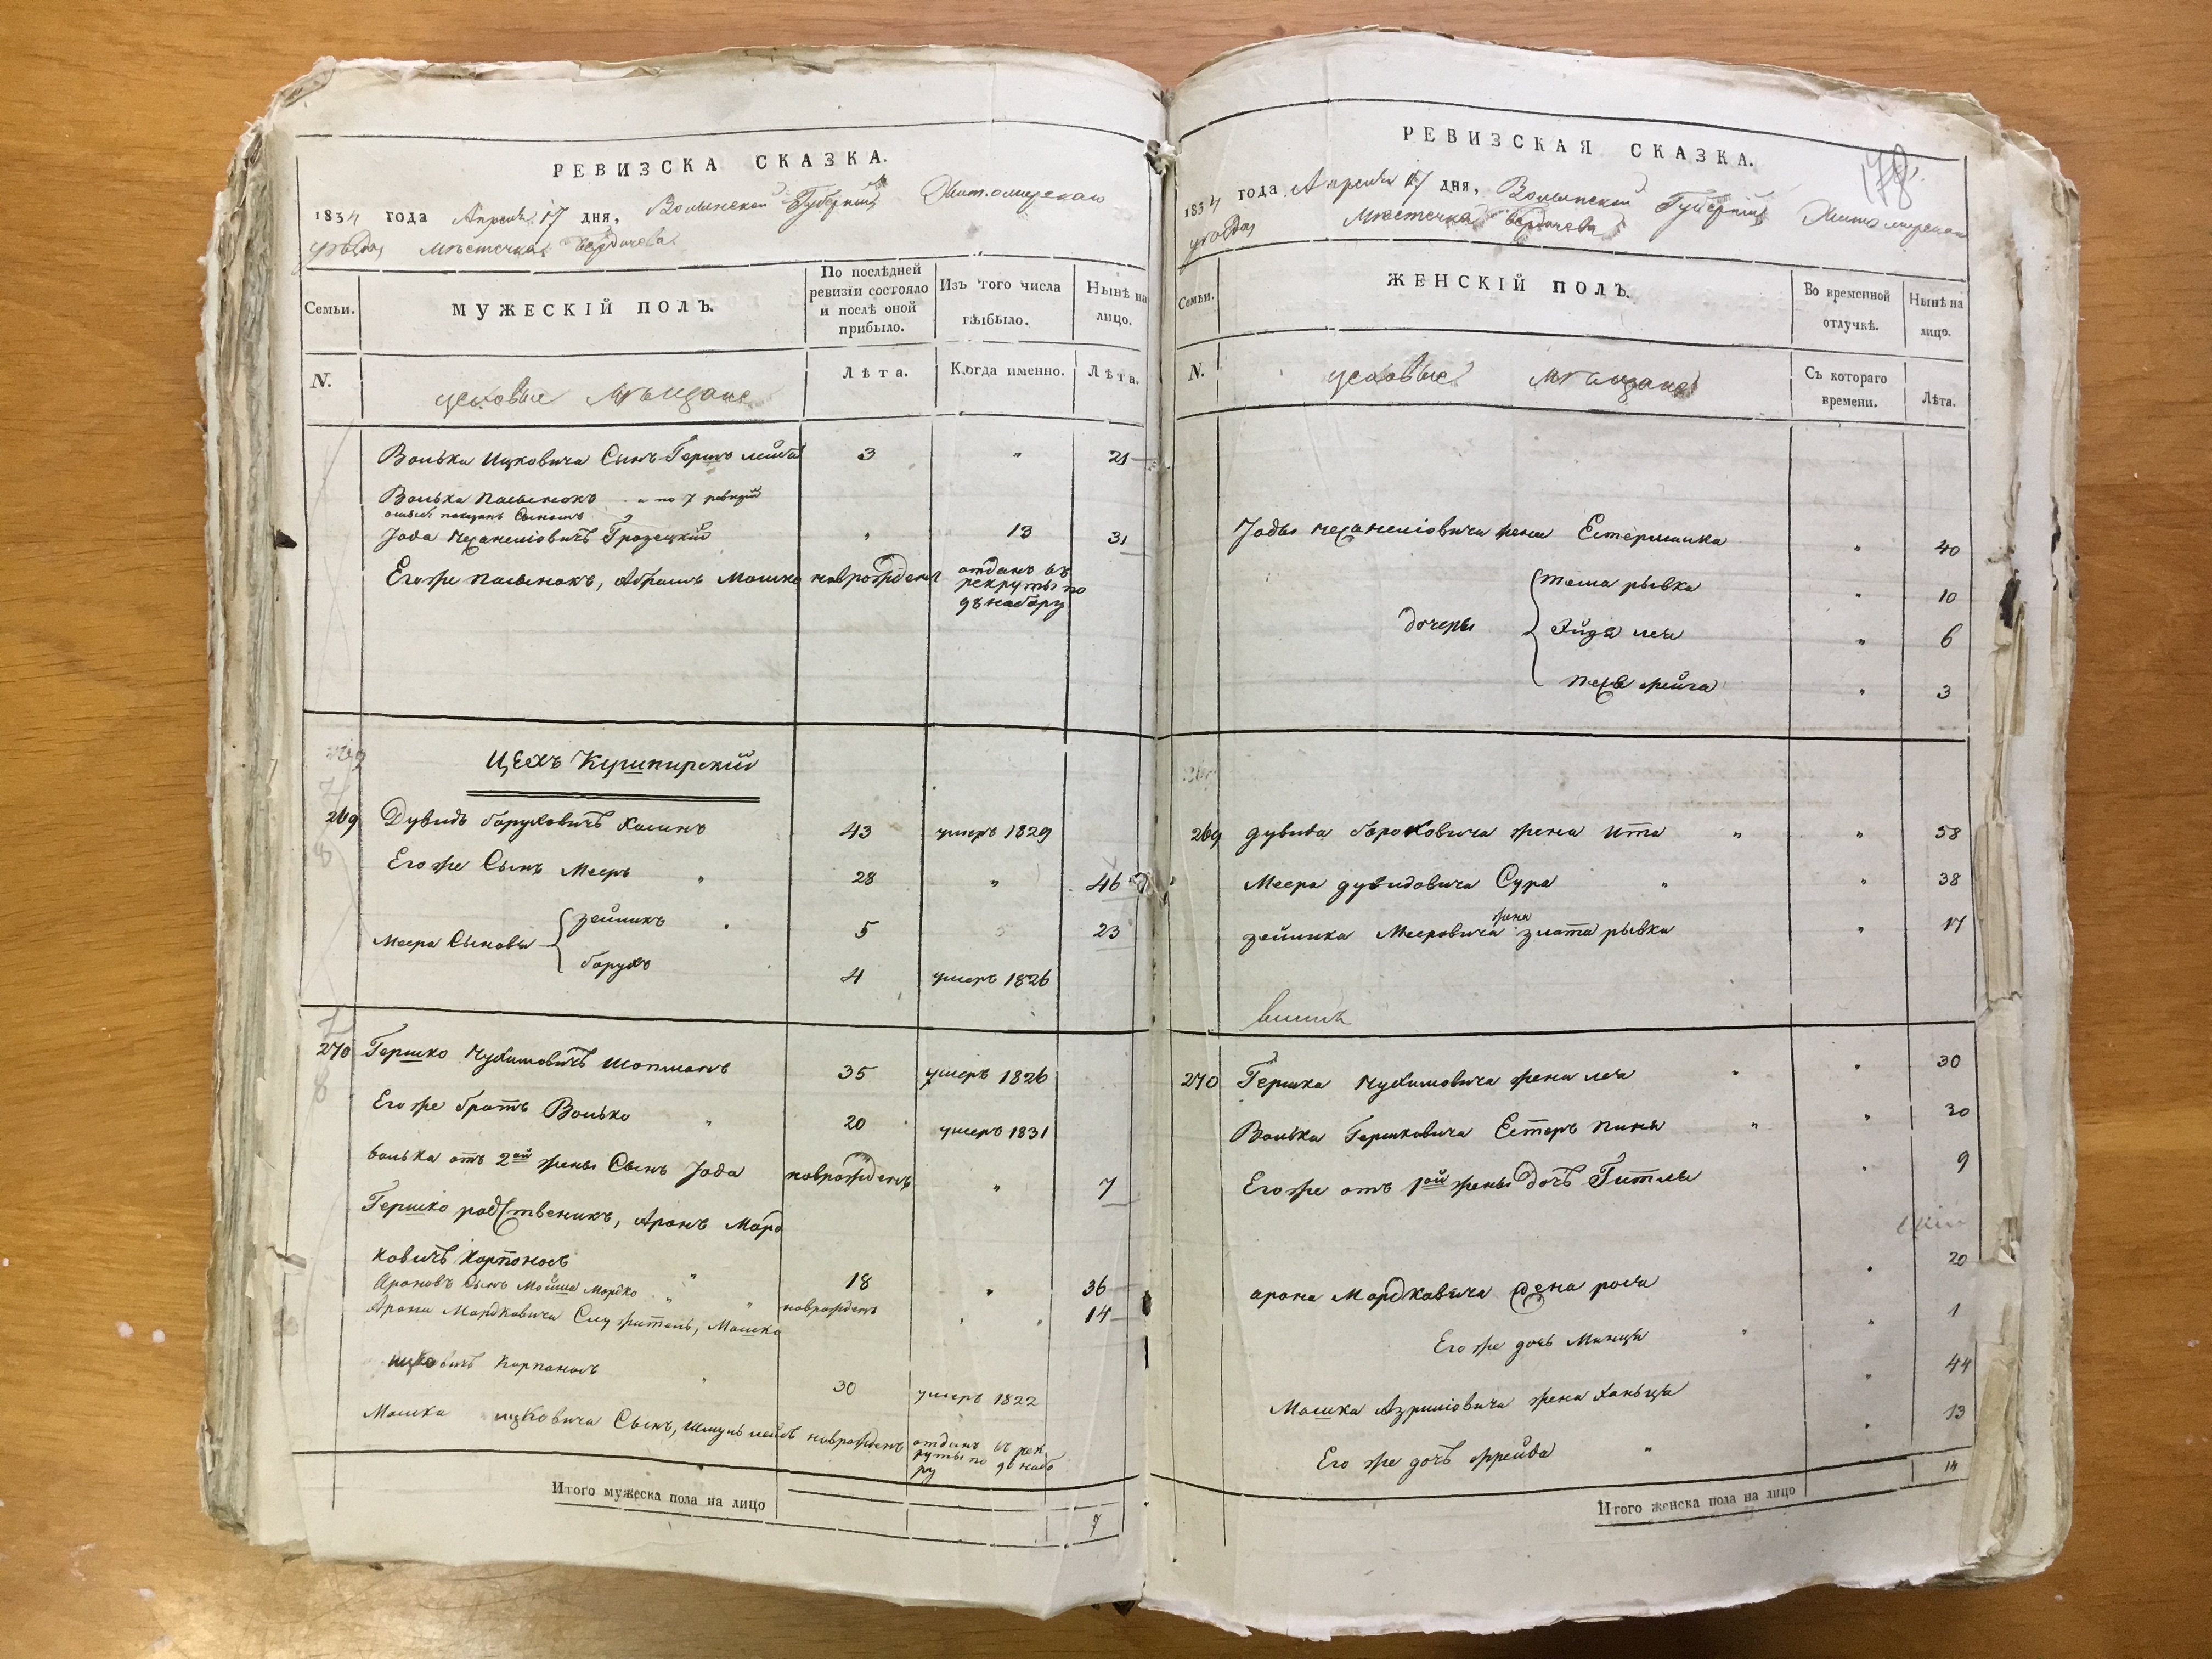 РЕВИЗСКА СКАЗКА.
1834 года Апреля 17 дня, Волынской Губернии Житомирскаго
уѣзда Мѣстечка Бердичева
Семьи.
МУЖЕСКІЙ ПОЛЪ.
По послѣдней ревизіи состояло и послѣ оной прибыло.
Изъ того числа выбыло.
Нынѣ на лицо.
N.
Лѣта.
Когда именно.
Лѣта.
цеховые мѣщане
Волька Ицковича Сынъ Гершъ лейба 3 " 21
Волька пасынокъ а по 7 ревизіи
показанъ Сыномъ
Іода Грозецкій " 13 31
Егоже пасынокъ, Абрамъ Мошко новрожден отданъ въ
рекруты по
набору
ЦЕХЪ Кушнирскій
269 Дувидъ Боруховичъ Калинъ 43 умеръ 1829
Его же Сынъ Мееръ " 28 " 46
Меера Сыновья зейликъ 5 23
борухъ 4 умеръ 1826
270 Гершко Нухимовичъ Шопманъ 35 умеръ 1826
Его же братъ Волько " 20 умеръ 1831
волька отъ 2ой жены Сынъ Іода новрожденъ " 7
Гершко родственикъ, Аронъ Морд
ковичъ Корпоносъ " 18 " 36
Ароновъ Сынъ Мойша Мордко " новрожден " 14
Арона Мордковича Служитель, Мошко
ицковичъ Корпоносъ " 30 умеръ 1822
Мошка ицковича Сынъ, Шмуль лейбъ новрожденъ отданъ въ рек
руты по набо
ру
Итого мужеска пола на лицо 7
РЕВИЗСКАЯ СКАЗКА.
178
1834 года Апреля 17 дня, Волынской Губерніи Житомирскаго
уѣзда Мѣстечка Бердичева
Семьи.
ЖЕНСКІЙ ПОЛЪ.
Во временной отлучкѣ.
Нынѣ на лицо.
N.
Съ котораго времени.
Лѣта.
цеховые мѣщане
Іоды жена Естермалка " 40
дочеры
тема рывка " 10
Лея " 6
фейга " 3
269 дувида Бороховича жена Ита " " 58
Меера дувидовича Сура " " 38
зейлика Мееровича жена злота рывка " 17
270 Гершка Нухимовича жена лея " " 30
Волька Гершковича Естеръ " " 30
Его же отъ 1ой жены дочь Гитля " 9
арона Мордковича жена рося " 20
Его же дочь Минця " " 1
Мошка Азриліовича жена Ханьця " 44
Его же дочь фрейда " " 13
Итого женска пола на лицо 14